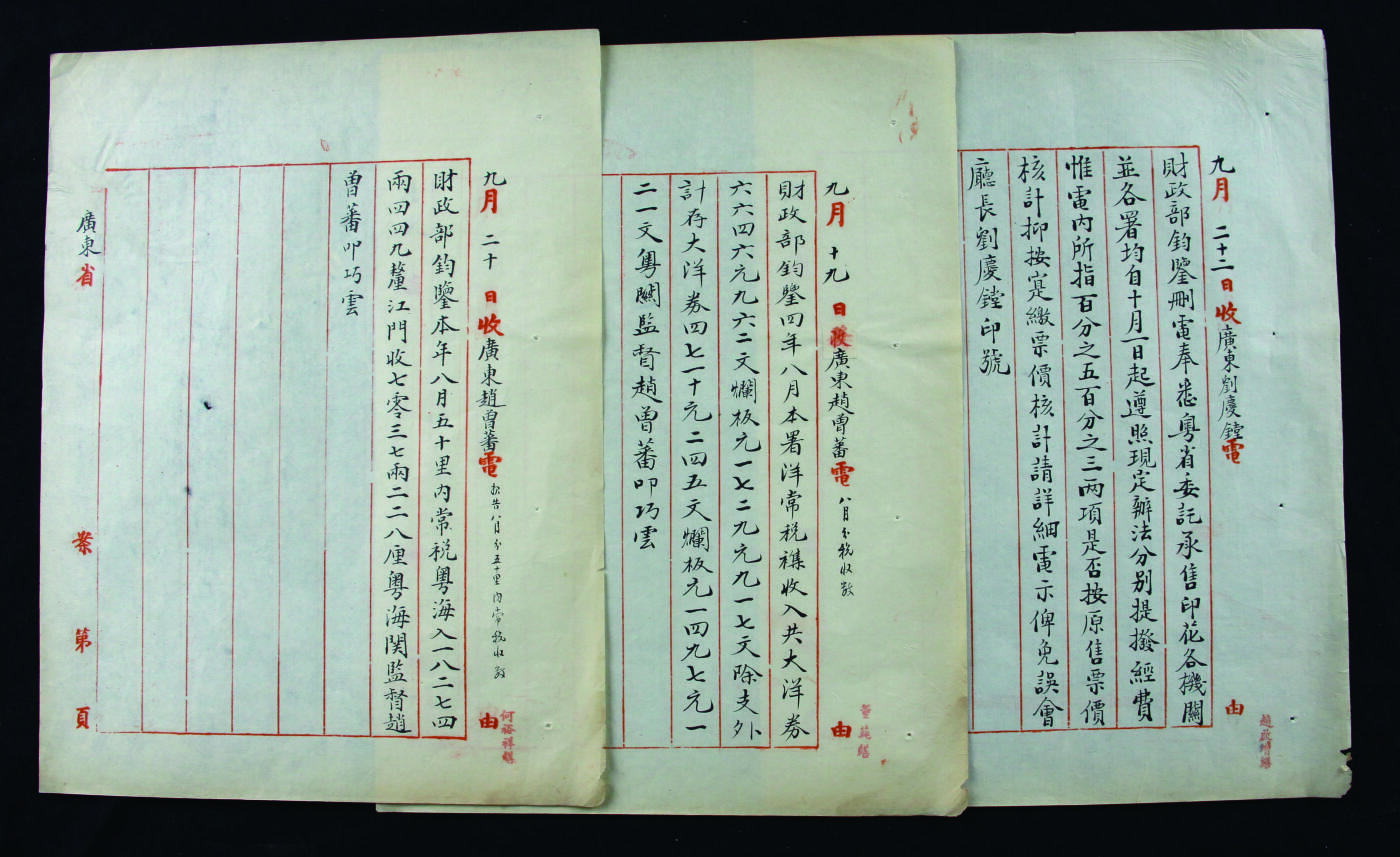 九月二十二日收廣東劉慶鏜電由
財政部鈞鑒刪電奉悉粵省委託承售印花各機關
並各署均自十月一日起遵照現定辦法分别提撥經費
惟電内所指百分之五百分之三兩項是否按原售票價
核計抑按寔繳票價核計請詳細電示俾免誤會
廳長劉慶鏜印號
趙啟增繕
九月十九日收廣東趙曾蕃電八月分稅收数由
財政部鈞鑒四年八月本署洋常税襍收入共大洋券
六六四六元九六二文爛板元一七二九元九一七文除支外
計存大洋券四七一十元二四五文爛板元一四九七元一
二一文粵關監督趙曾蕃叩巧雲
九月二十日收廣東趙曾蕃電報告八月分五十里内常税收数由
財政部鈞鑒本年八月五十里内常税粵海入一八二七四
兩四四九釐江門收七零三七兩二二八厘粵海関監督趙
曾蕃叩巧雲
何裕祥繕
廣東省 案第頁